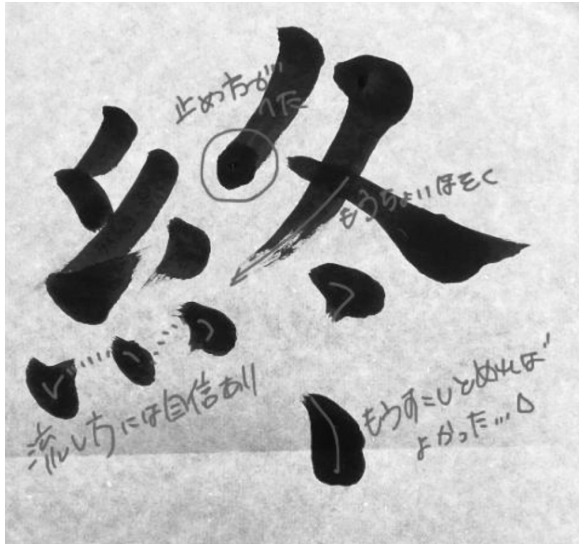 終
止め方が
へた
もうちょいほそく
流し方には自信あり
もうすこしとめれば
よかった…△